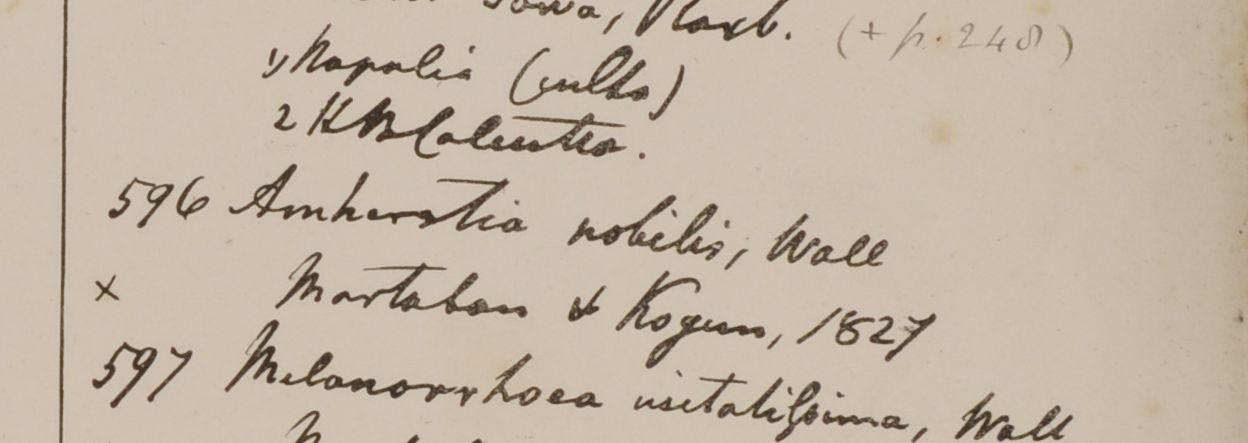 Roxb. (+ p. 248)
1) Napalia (culta)
2 H B Calcutta.
596 Amherstia nobilis, Wall
x Martaban & Kogun, 1827
597 Melanorrhoea usitatissima, Wall